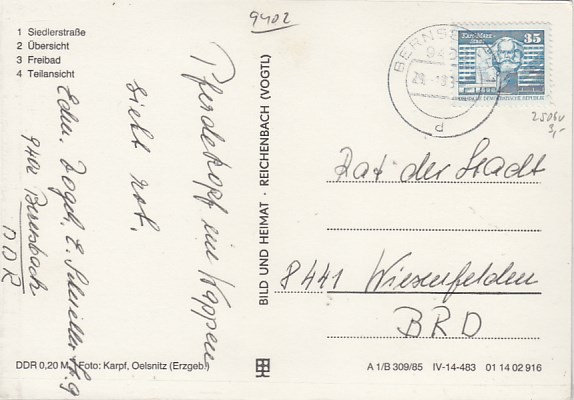 9402
1 Siedlerstraße
2 Übersicht
3 Freibad
4 Teilansicht
Pferdekopf im Wappen
sieht rot.
Edm. Vogel, E. Schneller Str. 9
9402 Bernsbach
DDR
BILD UND HEIMAT · REICHENBACH (VOGTL)
BERNSB
940
29.
d
Karl-Marx-
Stadt
35
DEUTSCHE DEMOKRATISCHE REPUBLIK
2506v
3,-
Rat der Stadt
8441 Wiesenfelden
BRD
DDR 0,20 M Foto: Karpf, Oelsnitz (Erzgeb.)
A 1/B 309/85 IV-14-483 01 14 02 916